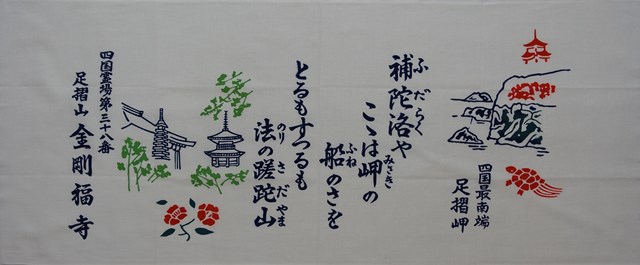 四国最南端
足摺岬
補陀洛や
ふだらく
こゝは岬の
みさき
船のさを
ふね
とるもすつるも
法の蹉跎山
のりさだやま
四国霊場第三十八番
足摺山金剛福寺